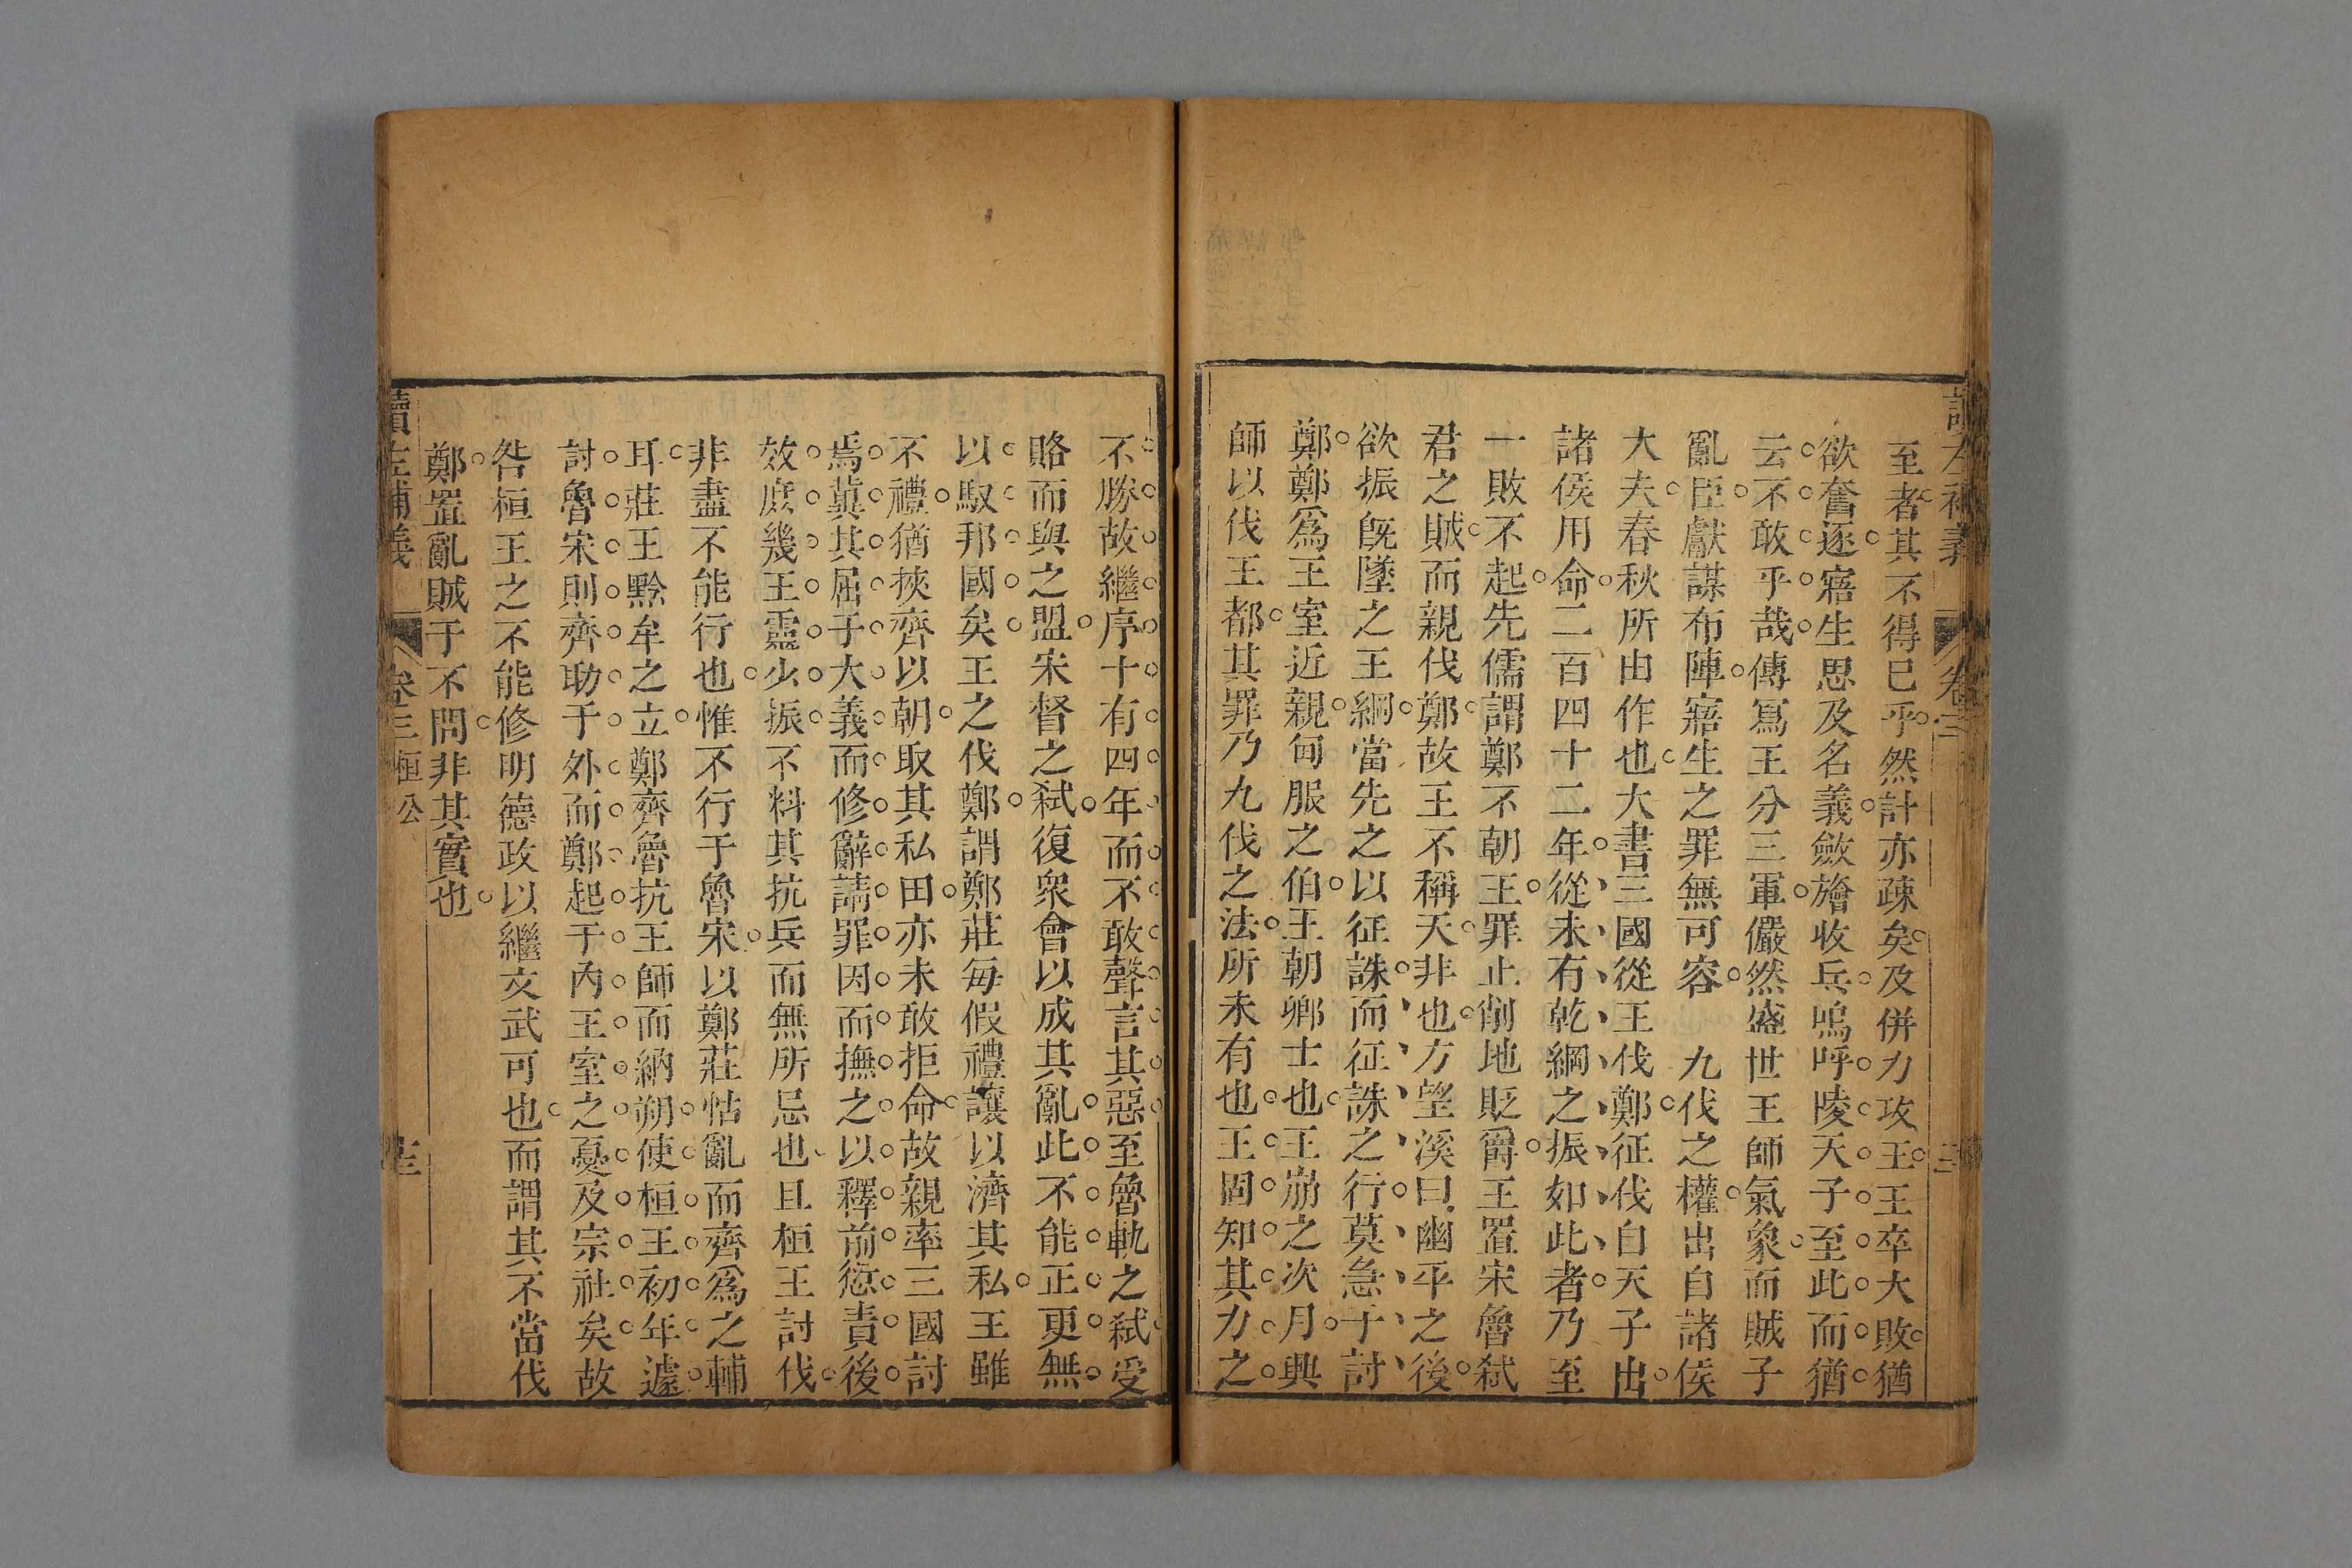 至者其不得已乎然計亦疎矣及併力攻王王卒大敗猶
欲奮逐寤生思及名義斂旝收兵嗚呼陵天子至此而猶
云不敢乎哉傳寫王分三軍儼然盛世王師氣象而賊子
亂臣獻謀布陣寤生之罪無可容　九伐之權出自諸侯
大夫春秋所由作也大書三國從王伐鄭征伐自天子出
諸侯用命二百四十二年從未有乾綱之振如此者乃至
一敗不起先儒謂鄭不朝王罪止削地貶爵王置宋魯弒
君之賊而親伐鄭故王不稱天非也方望溪曰幽平之後
欲振旣墜之王綱當先之以征誅而征誅之行莫急于討
鄭鄭爲王室近親甸服之伯王朝卿士也王崩之次月興
師以伐王都其罪乃九伐之法所未有也王固知其力之
不勝故繼序十有四年而不敢聲言其惡至魯軌之弒受
賂而與之盟宋督之弒復衆會以成其亂此不能正更無
以馭邦國矣王之伐鄭謂鄭莊每假禮讓以濟其私王雖
不禮猶挾齊以朝取其私田亦未敢拒命故親率三國討
焉冀其屈于大義而修辭請罪因而撫之以釋前愆責後
效庶幾王靈少振不料其抗兵而無所忌也且桓王討伐
非盡不能行也惟不行于魯宋以鄭莊怙亂而齊爲之輔
耳莊王黔牟之立鄭齊魯抗王師而納朔使桓王初年遽
討魯宋則齊助于外而鄭起于內王室之憂及宗社矣故
咎桓王之不能修明德政以繼文武可也而謂其不當伐
鄭置亂賊于不問非其實也
讀左補義　卷三桓公